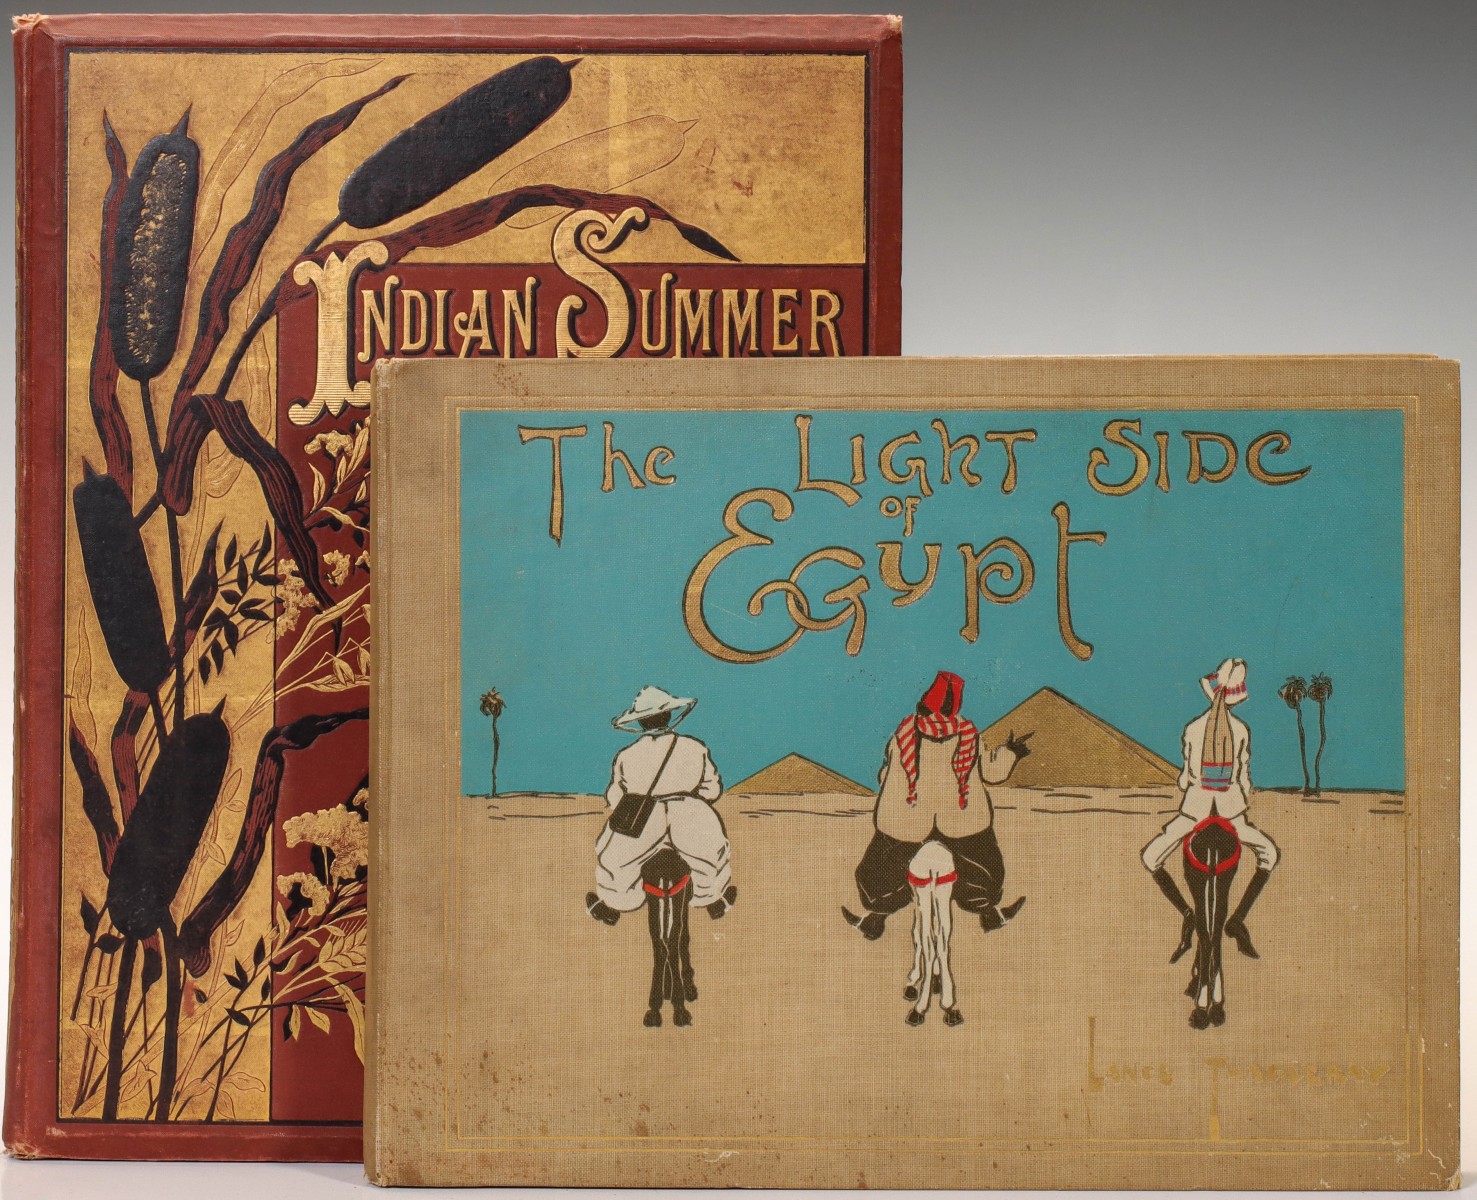 Indian Summer
The Light Side
of
Egypt
Lance Thackeray